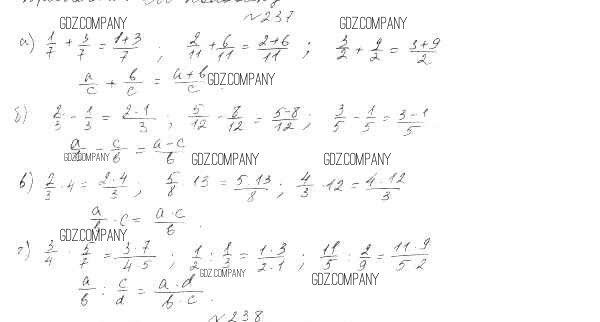 №237
GDZ.COMPANY GDZ.COMPANY
а) 1/7 + 3/7 = 1+3/7 ; 2/11 + 6/11 = 2+6/11 ; 3/2 + 9/2 = 3+9/2
a/c + b/c = a+b/c GDZ.COMPANY
б) 2/3 - 1/3 = 2-1/3 ; 5/12 - 8/12 = 5-8/12 ; 3/5 - 1/5 = 3-1/5
a/b - c/b = a-c/b
GDZ.COMPANY GDZ.COMPANY GDZ.COMPANY
в) 2/3 · 4 = 2·4/3 ; 5/8 · 13 = 5·13/8 ; 4/3 · 12 = 4·12/3
a/b · c = a·c/b .
GDZ.COMPANY
г) 3/4 : 5/7 = 3·7/4·5 ; 1/2 : 1/3 = 1·3/2·1 ; 11/5 : 2/9 = 11·9/5·2
GDZ.COMPANY GDZ.COMPANY
a/b : c/d = a·d/b·c .
№238